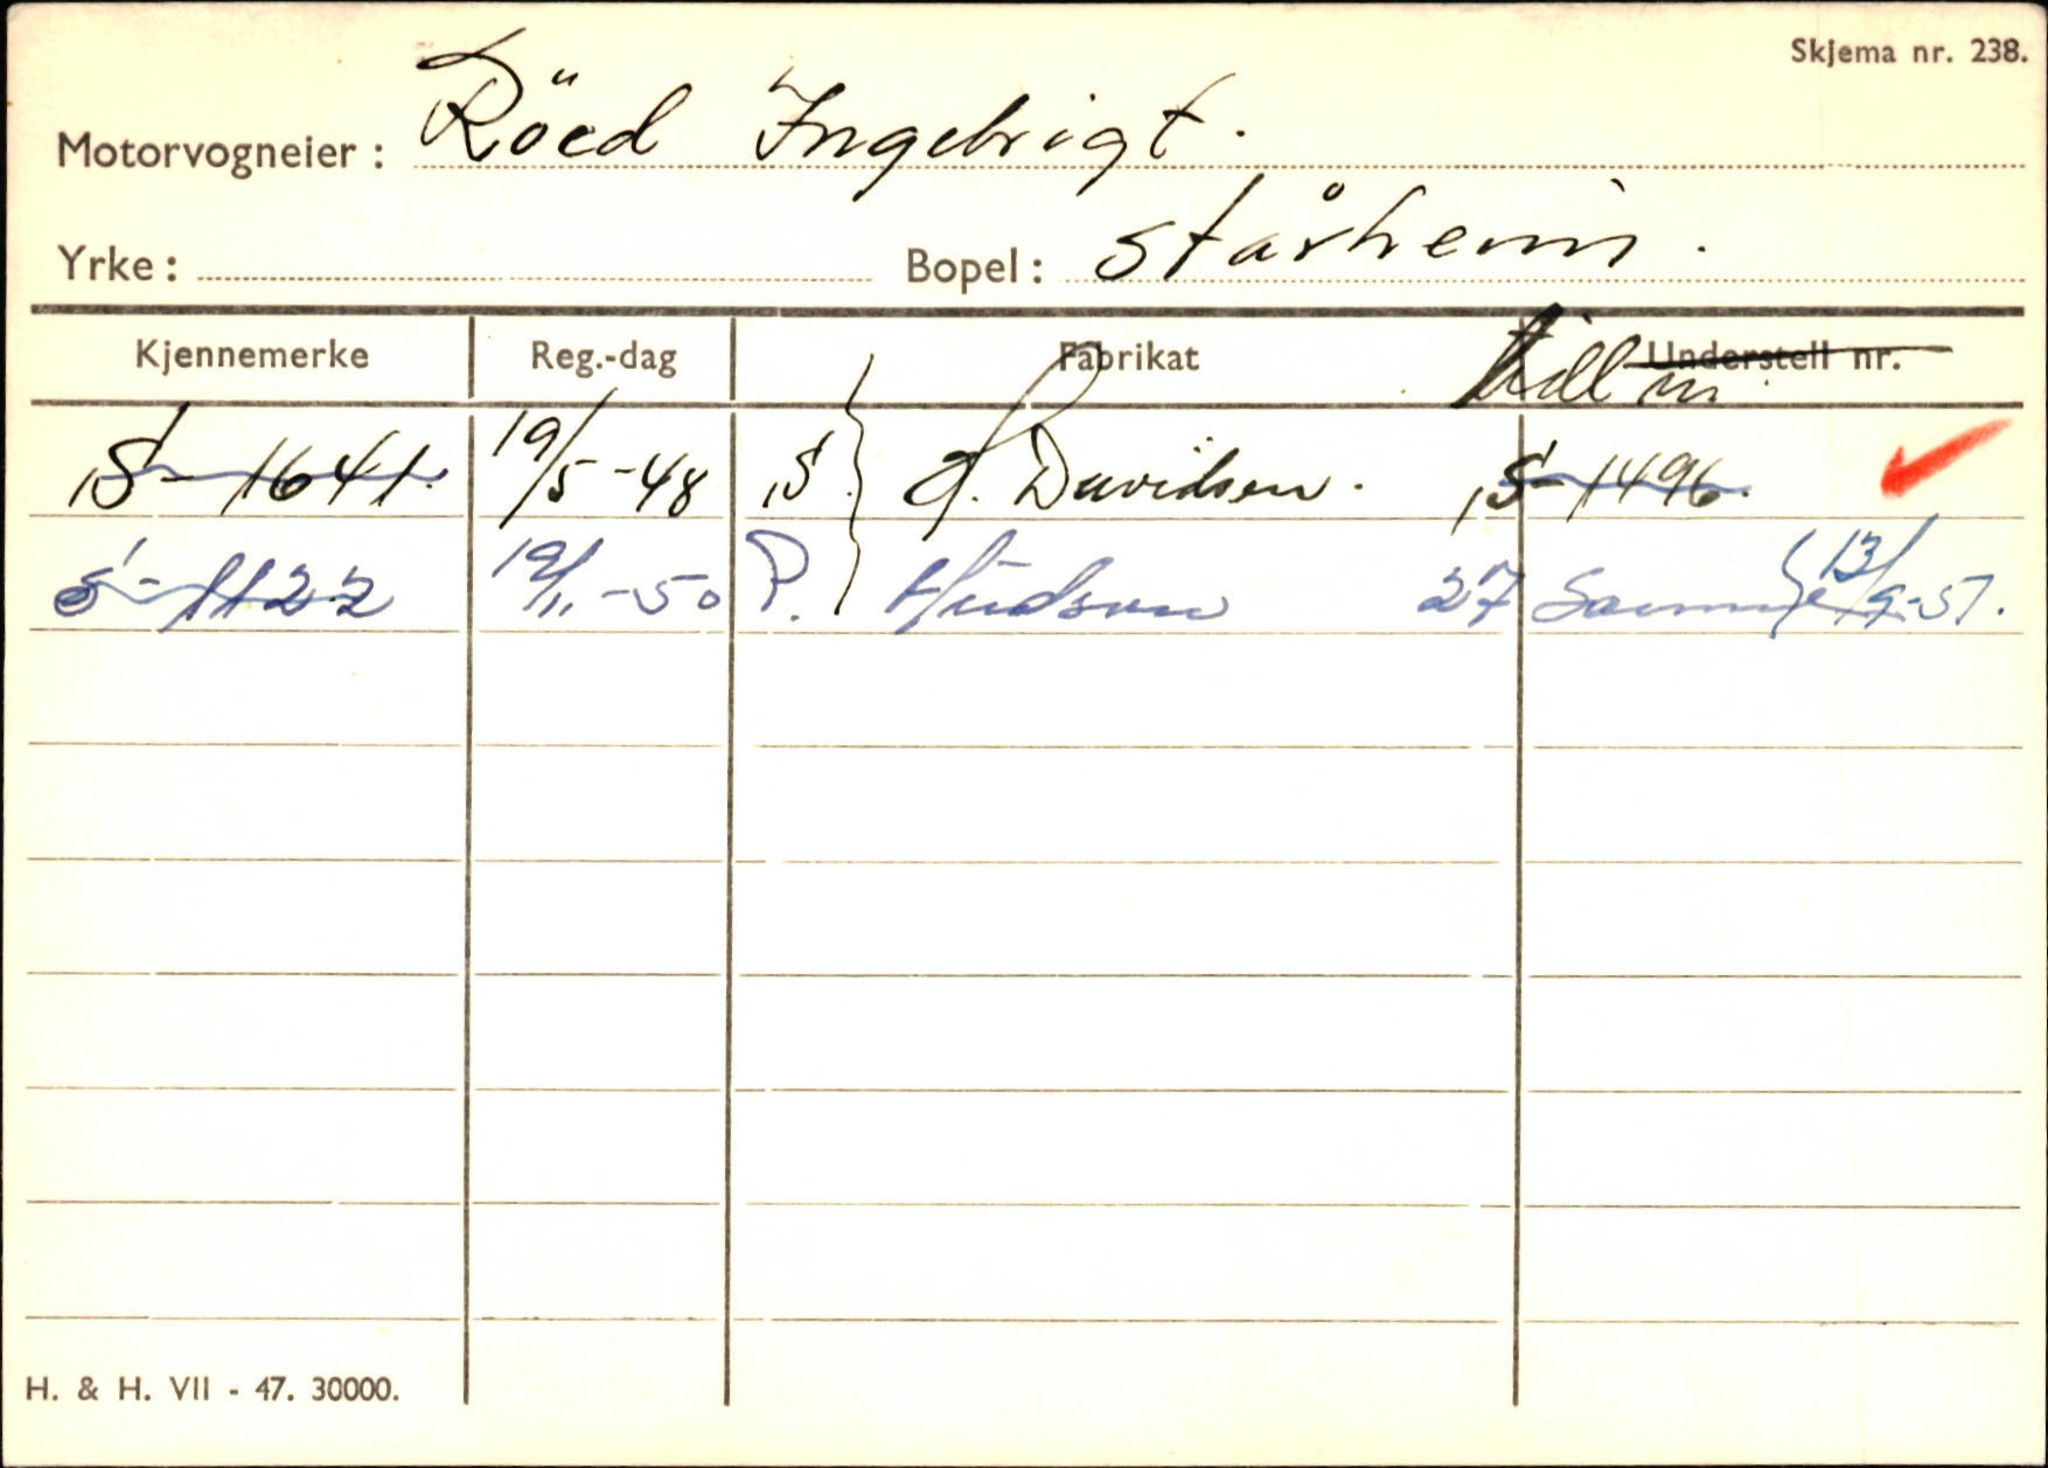 Skjema nr. 238.
Motorvogneier: Röed Ingebrigt.
Yrke: Bopel: Stårheim.
Kjennemerke Reg.-dag Fabrikat Understell nr.
S-1641. 19/5-48 S. H. Davidson. S-1496.
S-1122 19/11-50 P. Hudson 27 Samme 13/9-51.
H. & H. VII - 47. 30000.